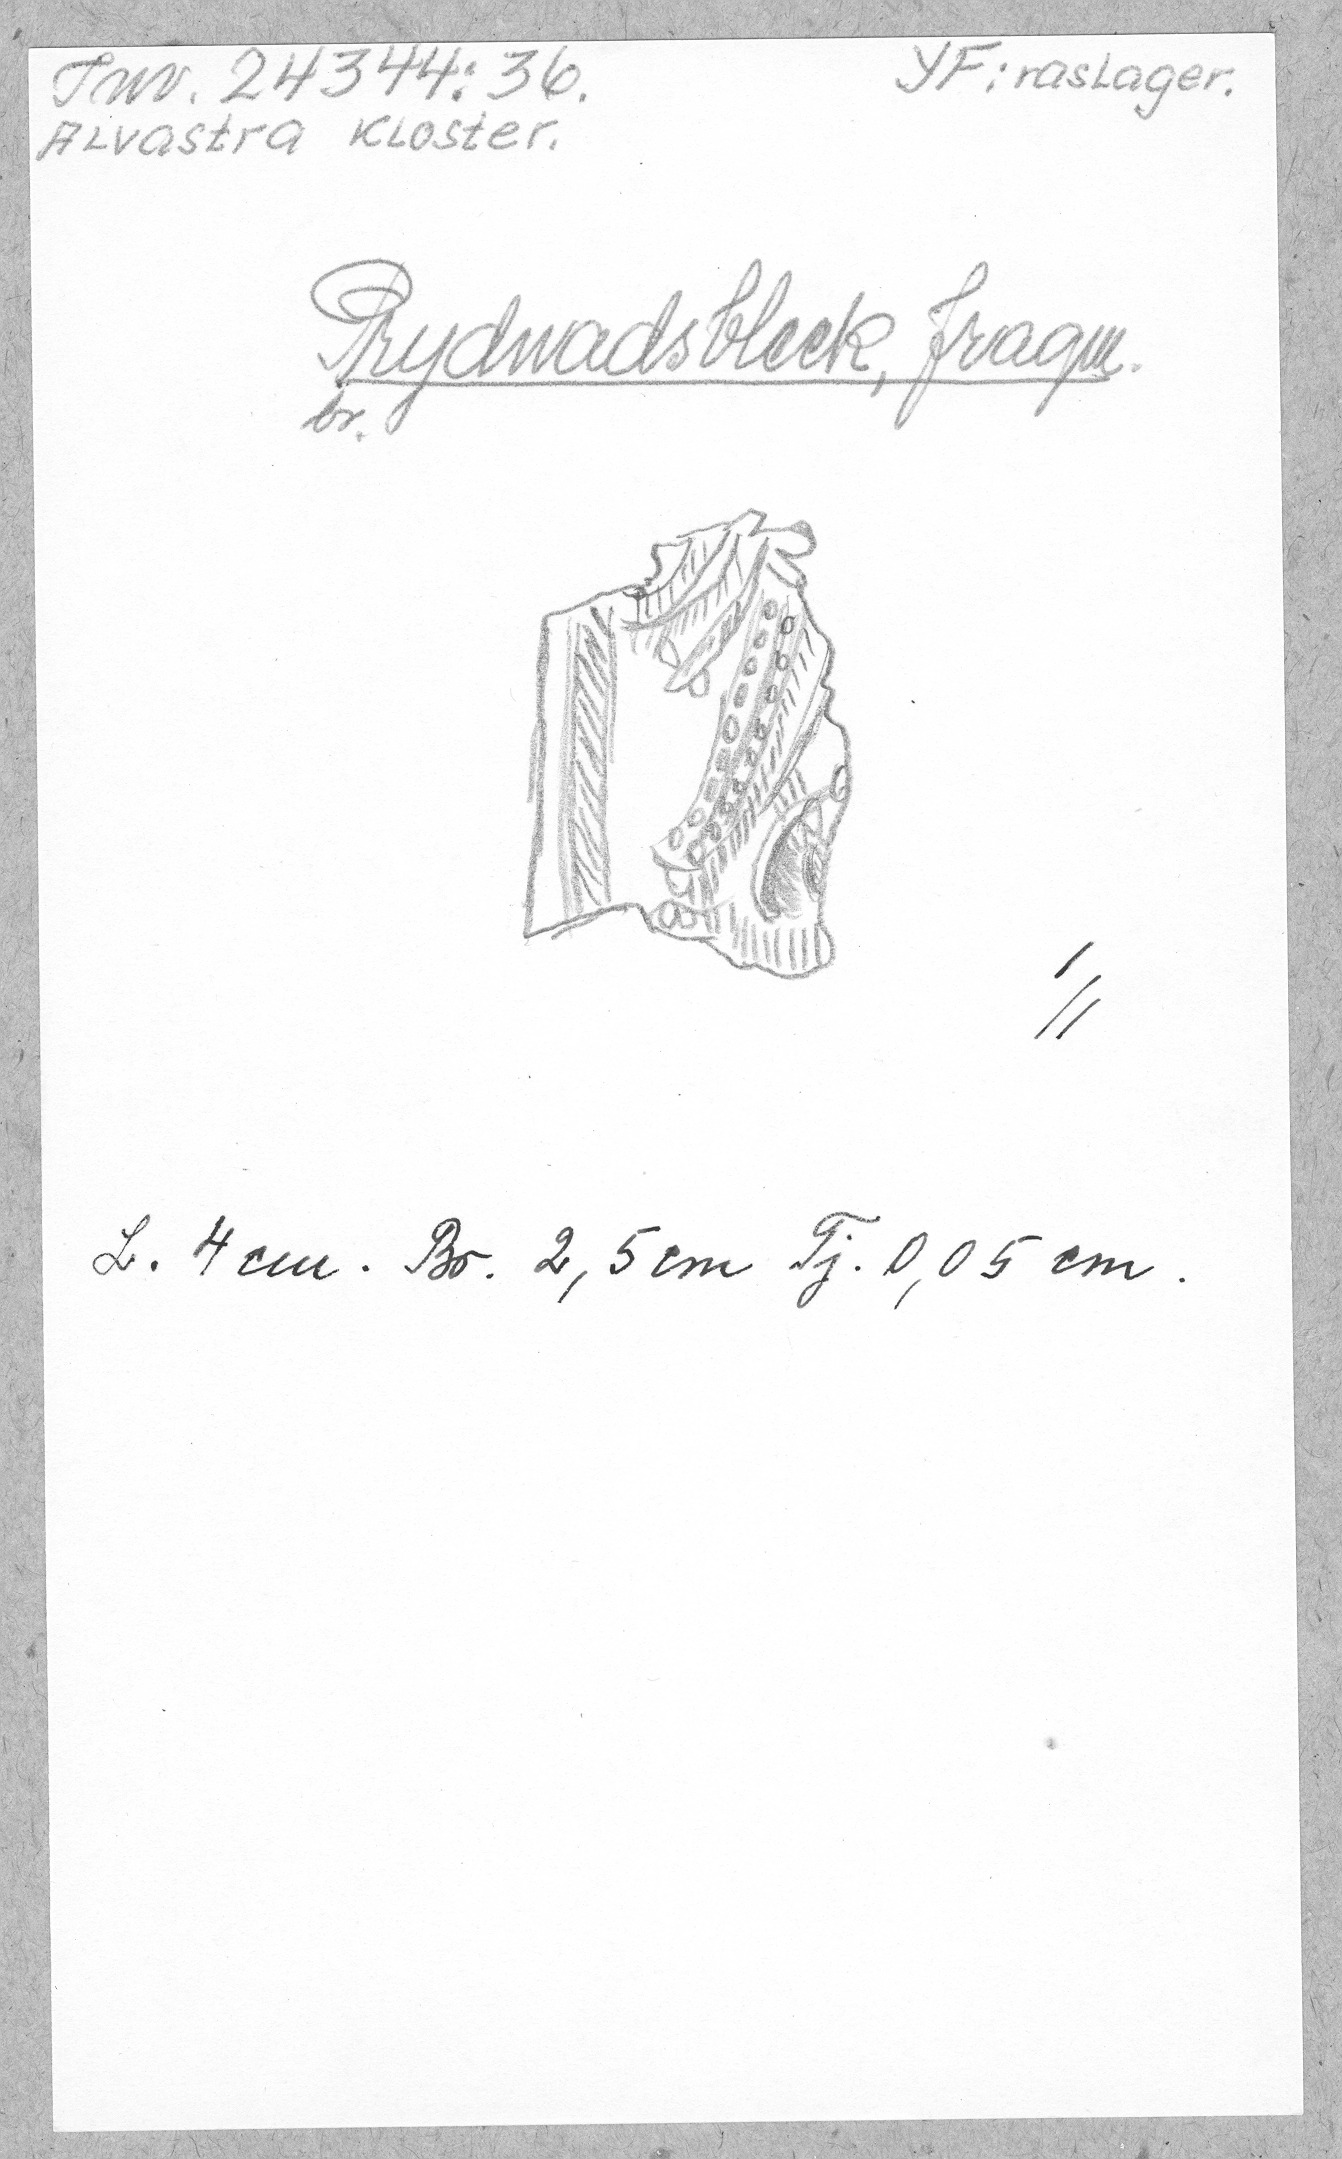 Inv. 24344:36.
YF: raslager.
Alvastra Kloster.
Prydnadsbleck, fragm.
br.
1/1
L. 4 cm. Br. 2,5 cm Tj. 0,05 cm.